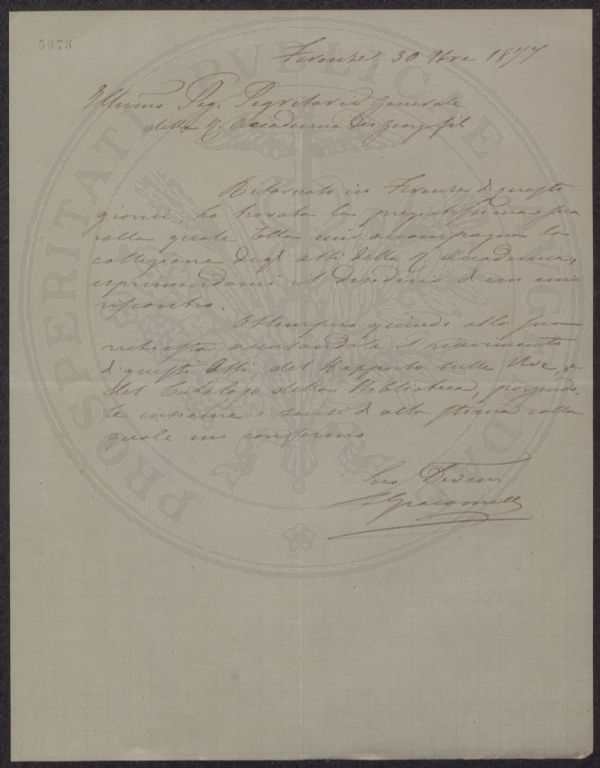 5078
Firenze, 30 9bre 1877
Illmo Sig. Segretario Generale
della R. Accademia dei Georgofili
Ritornato in Firenze di questi
giorni, ho trovata la pregiatissima sua
colla quale Ella mi accompagna la
collezione degli atti della R. Accademia,
esprimendomi il desiderio di un mio
riscontro.
Ottempero quindi alla sua
richiesta accusandole il ricevimento
di questi Atti, del Rapporto sulle Uve, e
del Catalogo della Biblioteca, porgendo-
le insieme i sensi di alta stima colla
quale mi confermo
Suo Devmo
PROSPERITATI PVBLICAE AVGENDAE